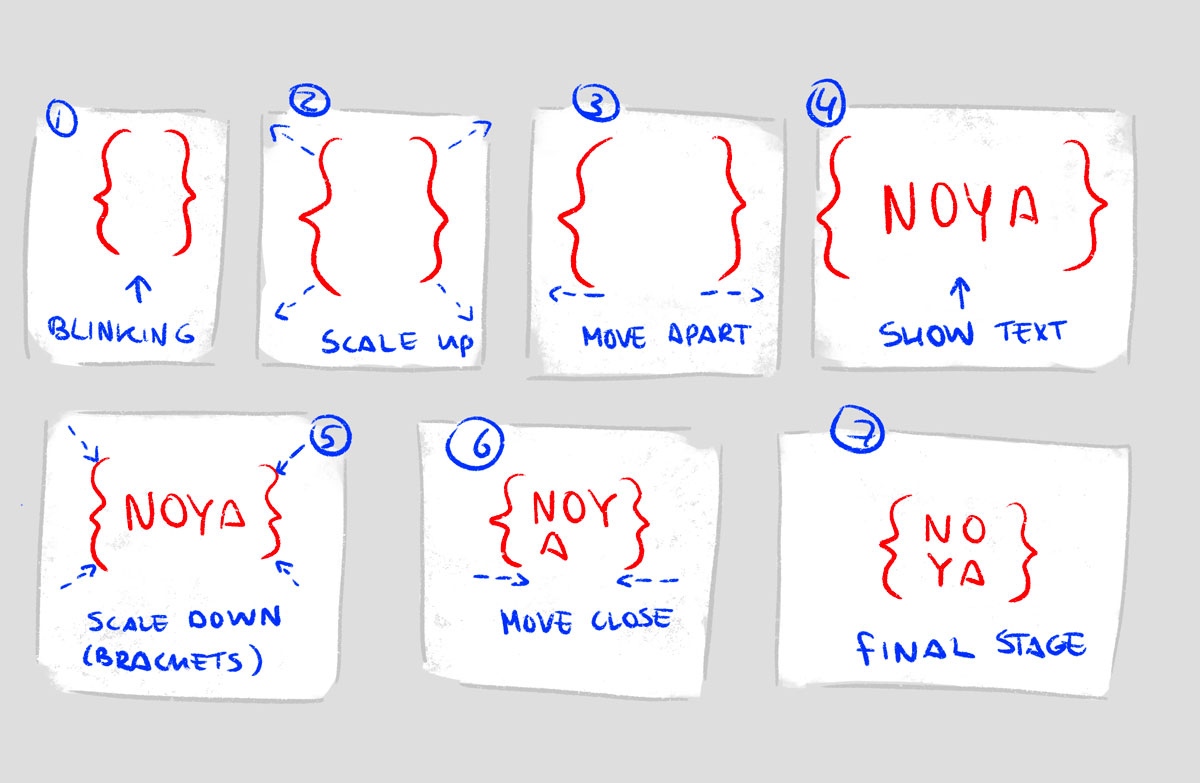 1
{ }
BLINKING
2
{ }
SCALE UP
3
{ }
MOVE APART
4
{ NOYA }
SHOW TEXT
5
{ NOYA }
SCALE DOWN
(BRACKETS)
6
{ NOY
A }
MOVE CLOSE
7
{ NO
YA }
FINAL STAGE